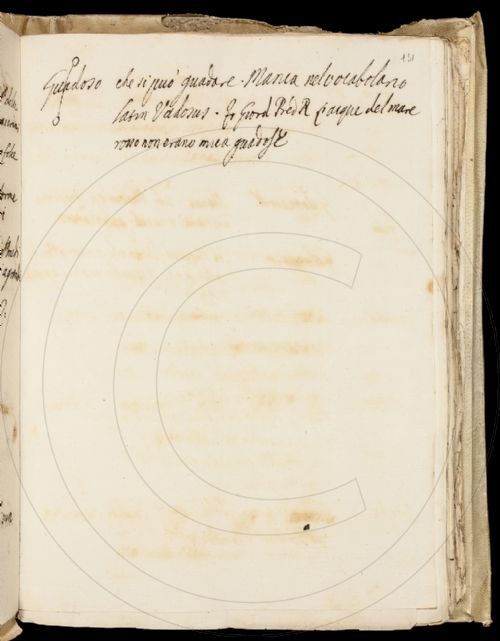 151
Guadoso che si può guadare. Manca nel vocabolario
Latin Vadosus. Fr Giord Pred R L'acque del mare
rosso non erano mica guadose